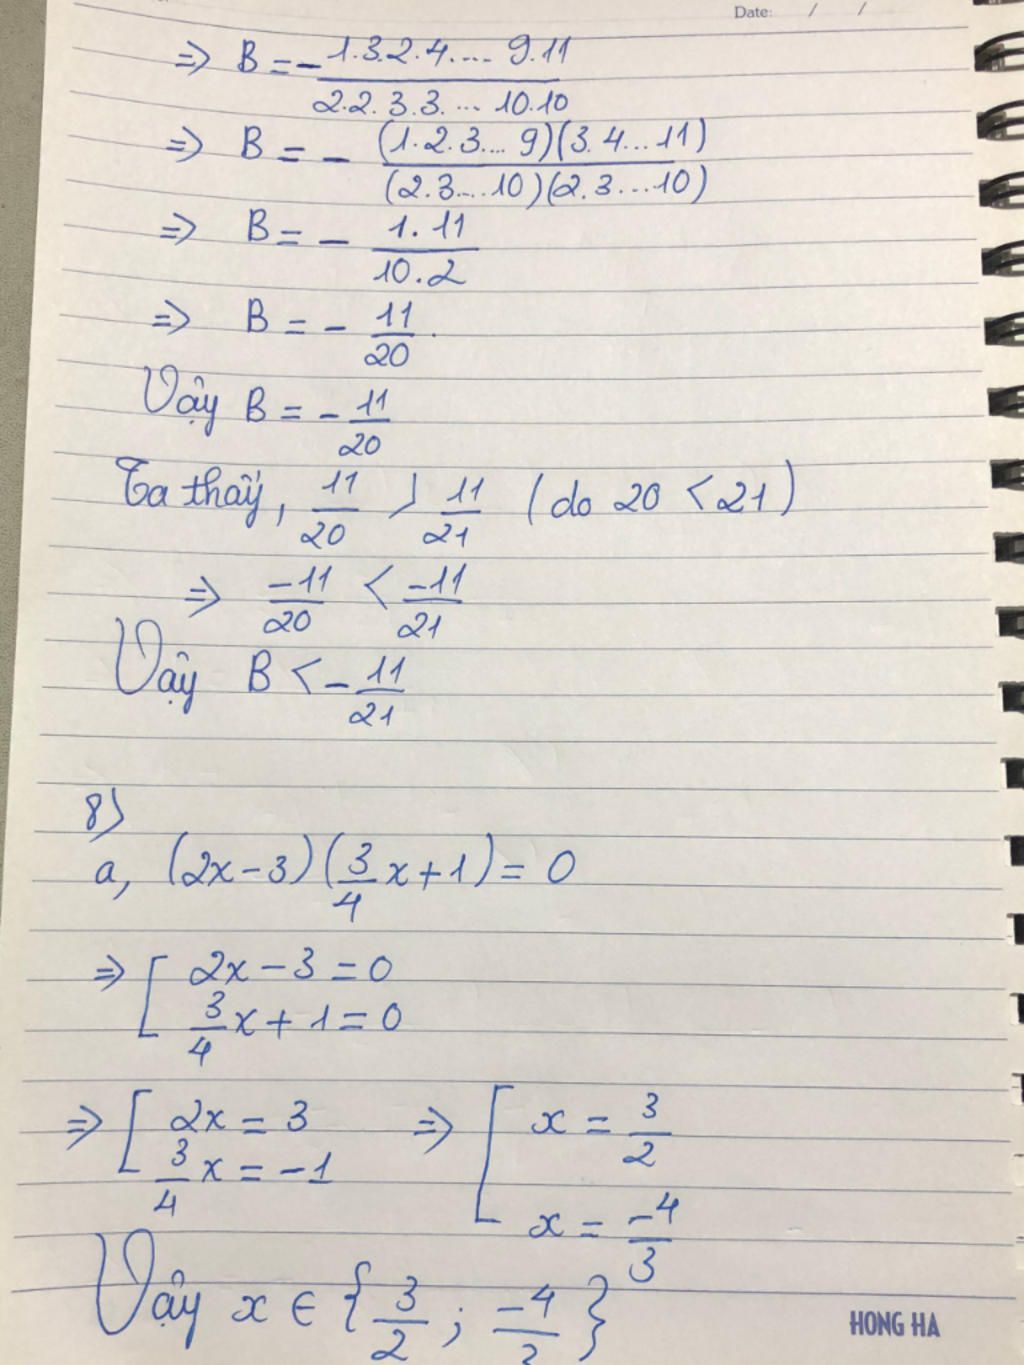 Date: / /
=> B = - 1.3.2.4.... 9.11 / 2.2.3.3.... 10.10
=> B = - (1.2.3... 9)(3.4...11) / (2.3....10)(2.3...10)
=> B = - 1.11 / 10.2
=> B = - 11/20.
Vậy B = - 11/20
Ta thấy, 11/20 > 11/21 (do 20 < 21)
=> -11/20 < -11/21
Vậy B < - 11/21
8)
a, (2x-3)(3/4x+1) = 0
=> [ 2x - 3 = 0
3/4x + 1 = 0
=> [ 2x = 3 => [ x = 3/2
3/4x = -1 x = -4/3
Vậy x ∈ {3/2 ; -4/3}
HONG HA